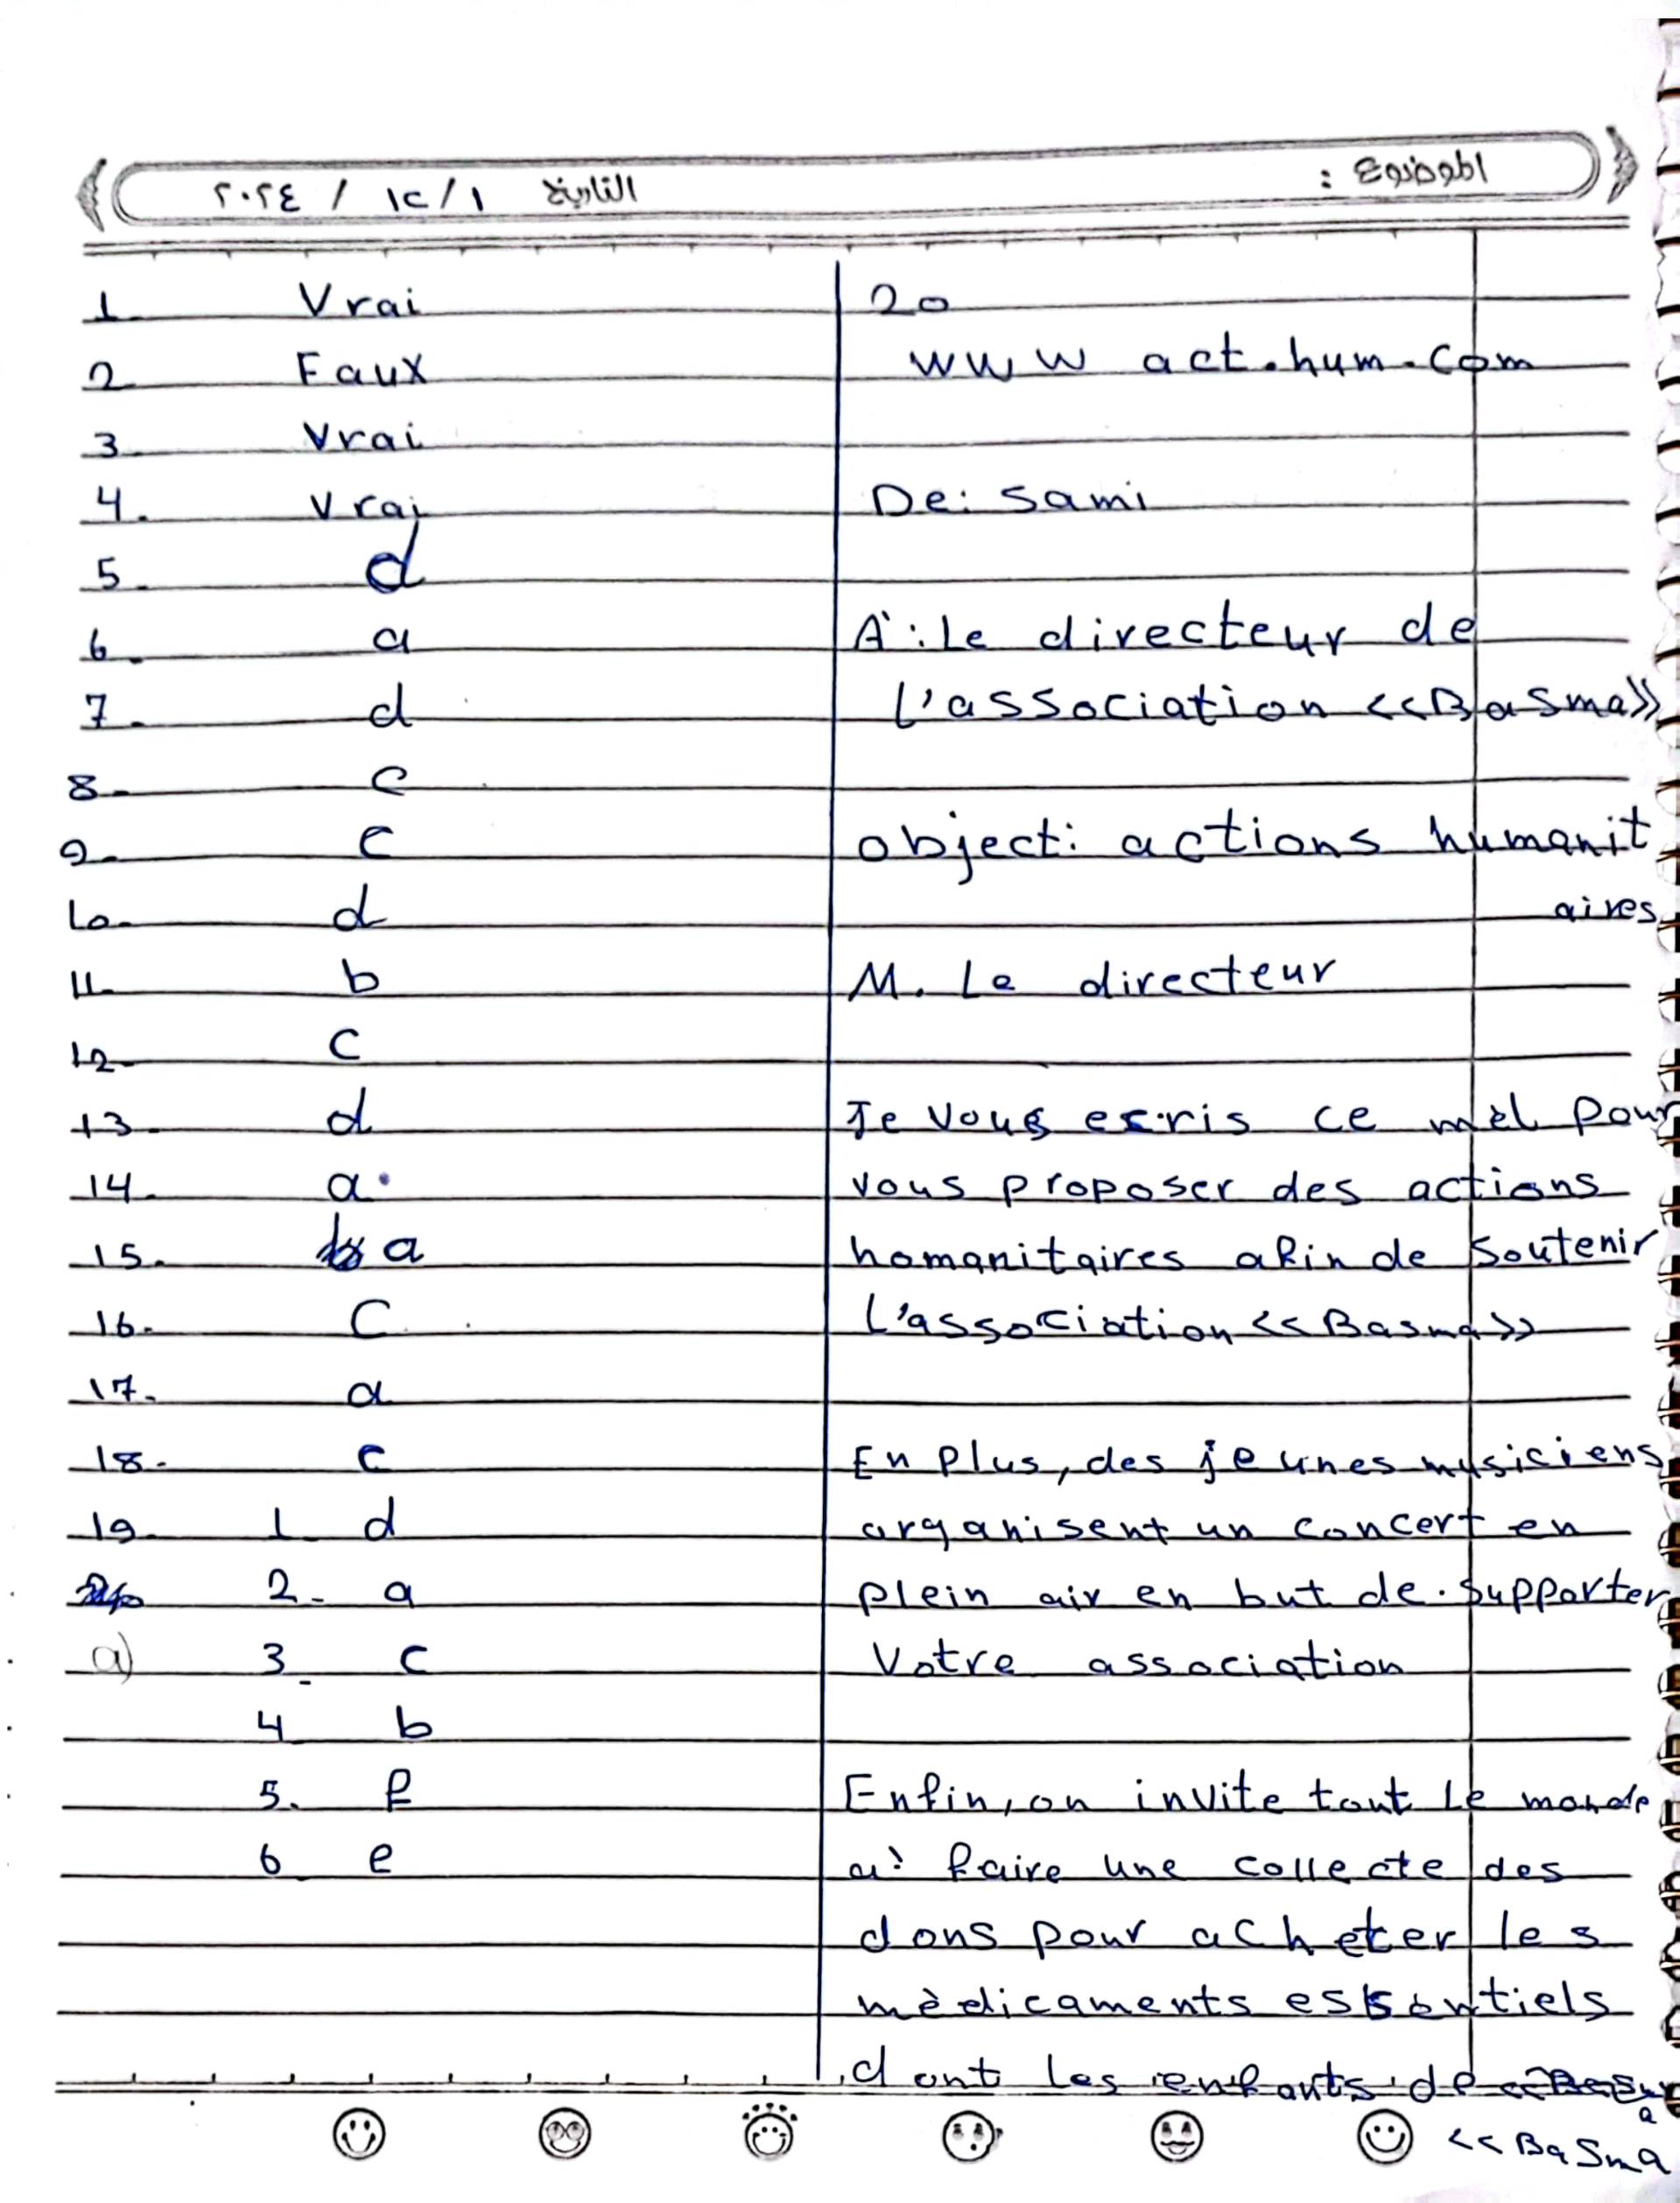 الموضوع :
التاريخ ١ / ١٢ / ٢٠٢٤
1 Vrai
2 Faux
3 Vrai
4. Vrai
5 d
6 a
7 d
8 c
9 c
10 d
11 b
12 c
13 d
14 a
15. a
16. C
17. a
18. c
19 1 d
2 a
a) 3 c
4 b
5. f
6 e
20
www act.hum.com
De: sami
A: Le directeur de
L'association <<Basma>>
object: actions humanit
aires
M. Le directeur
Je vous ecris ce mèl pour
vous proposer des actions
homanitaires afin de soutenir
L'association <<Basma>>
En Plus, des jeunes musiciens
organisent un concert en
plein air en but de supporter
Votre association
Enfin, on invite tout le monde
à faire une collecte des
dons pour acheter les
mèdicaments essentiels
dont les enfants de
<<Basma